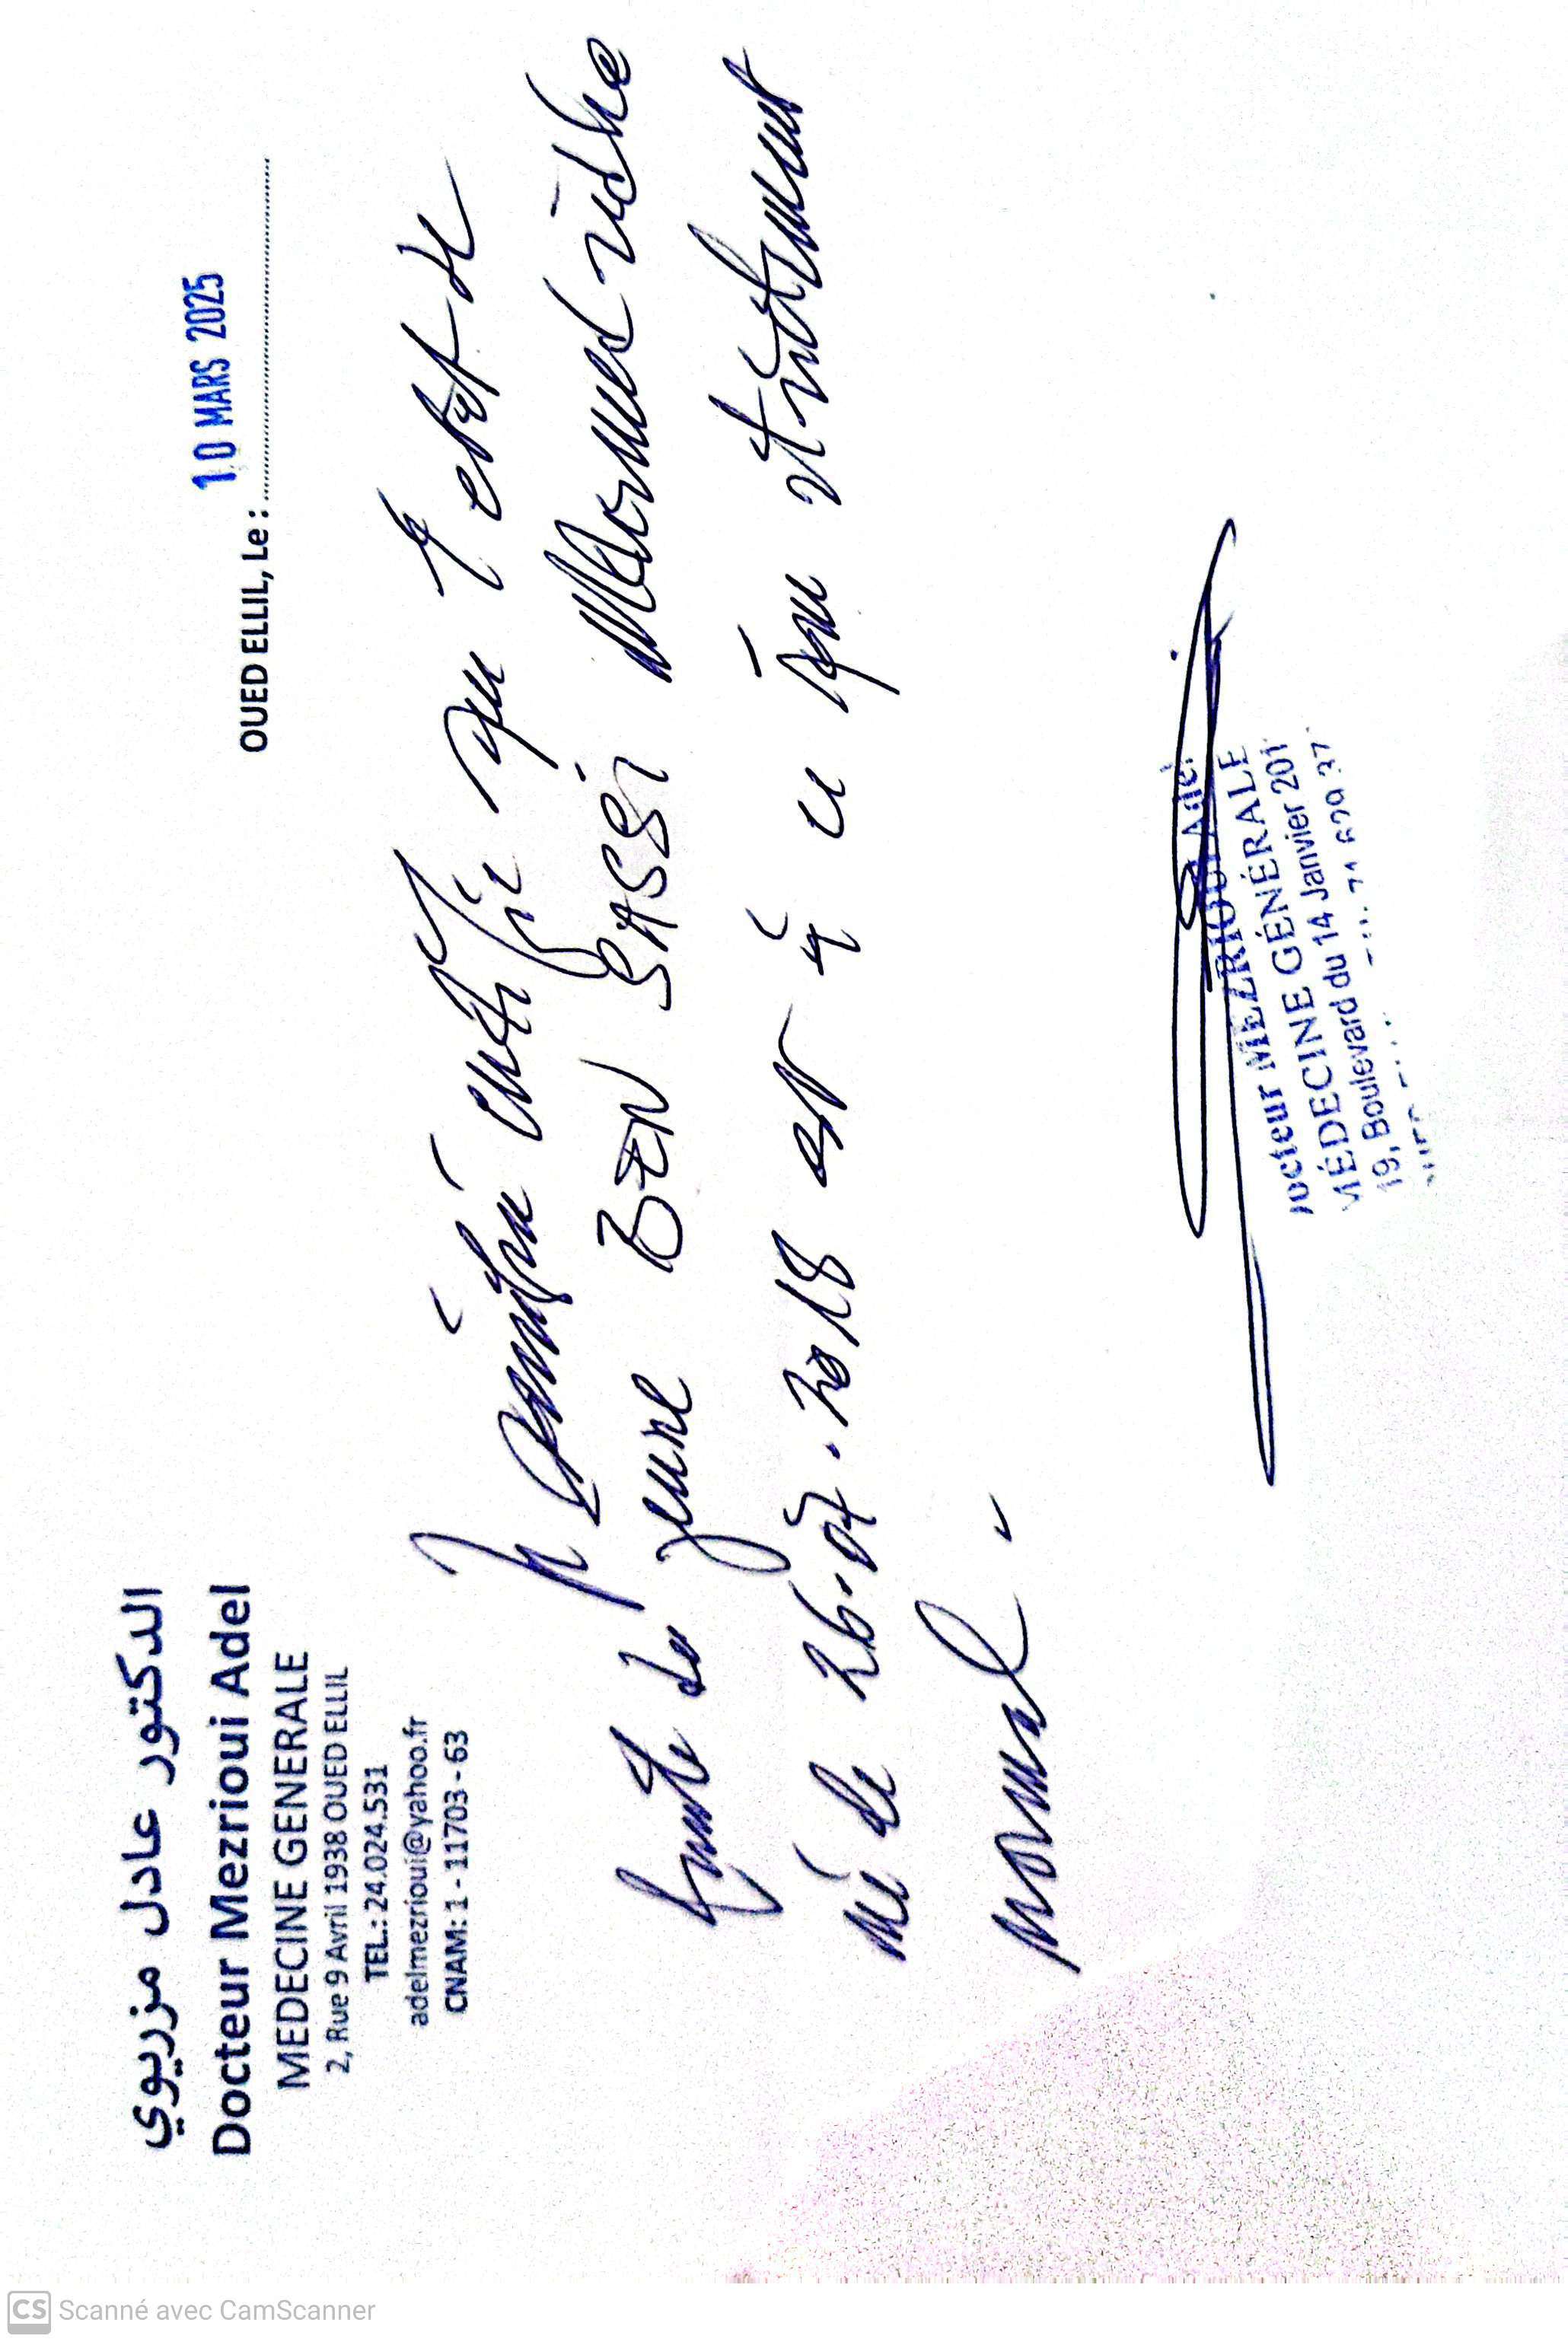 الدكتور عادل مزريوي
Docteur Mezrioui Adel
MEDECINE GENERALE
2, Rue 9 Avril 1938 OUED ELLIL
TEL.: 24.024.531
adelmezrioui@yahoo.fr
CNAM: 1 - 11703 - 63
OUED ELLIL, Le : 10 MARS 2025
Je soussigné certifie que l'état de
santé du jeune BEN SASSI Mahmoud
né le 26.07.2018 est à ce jour strictement
normal.
Docteur MEZRIOUI Adel
MÉDECINE GÉNÉRALE
19, Boulevard du 14 Janvier 201
CS Scanné avec CamScanner